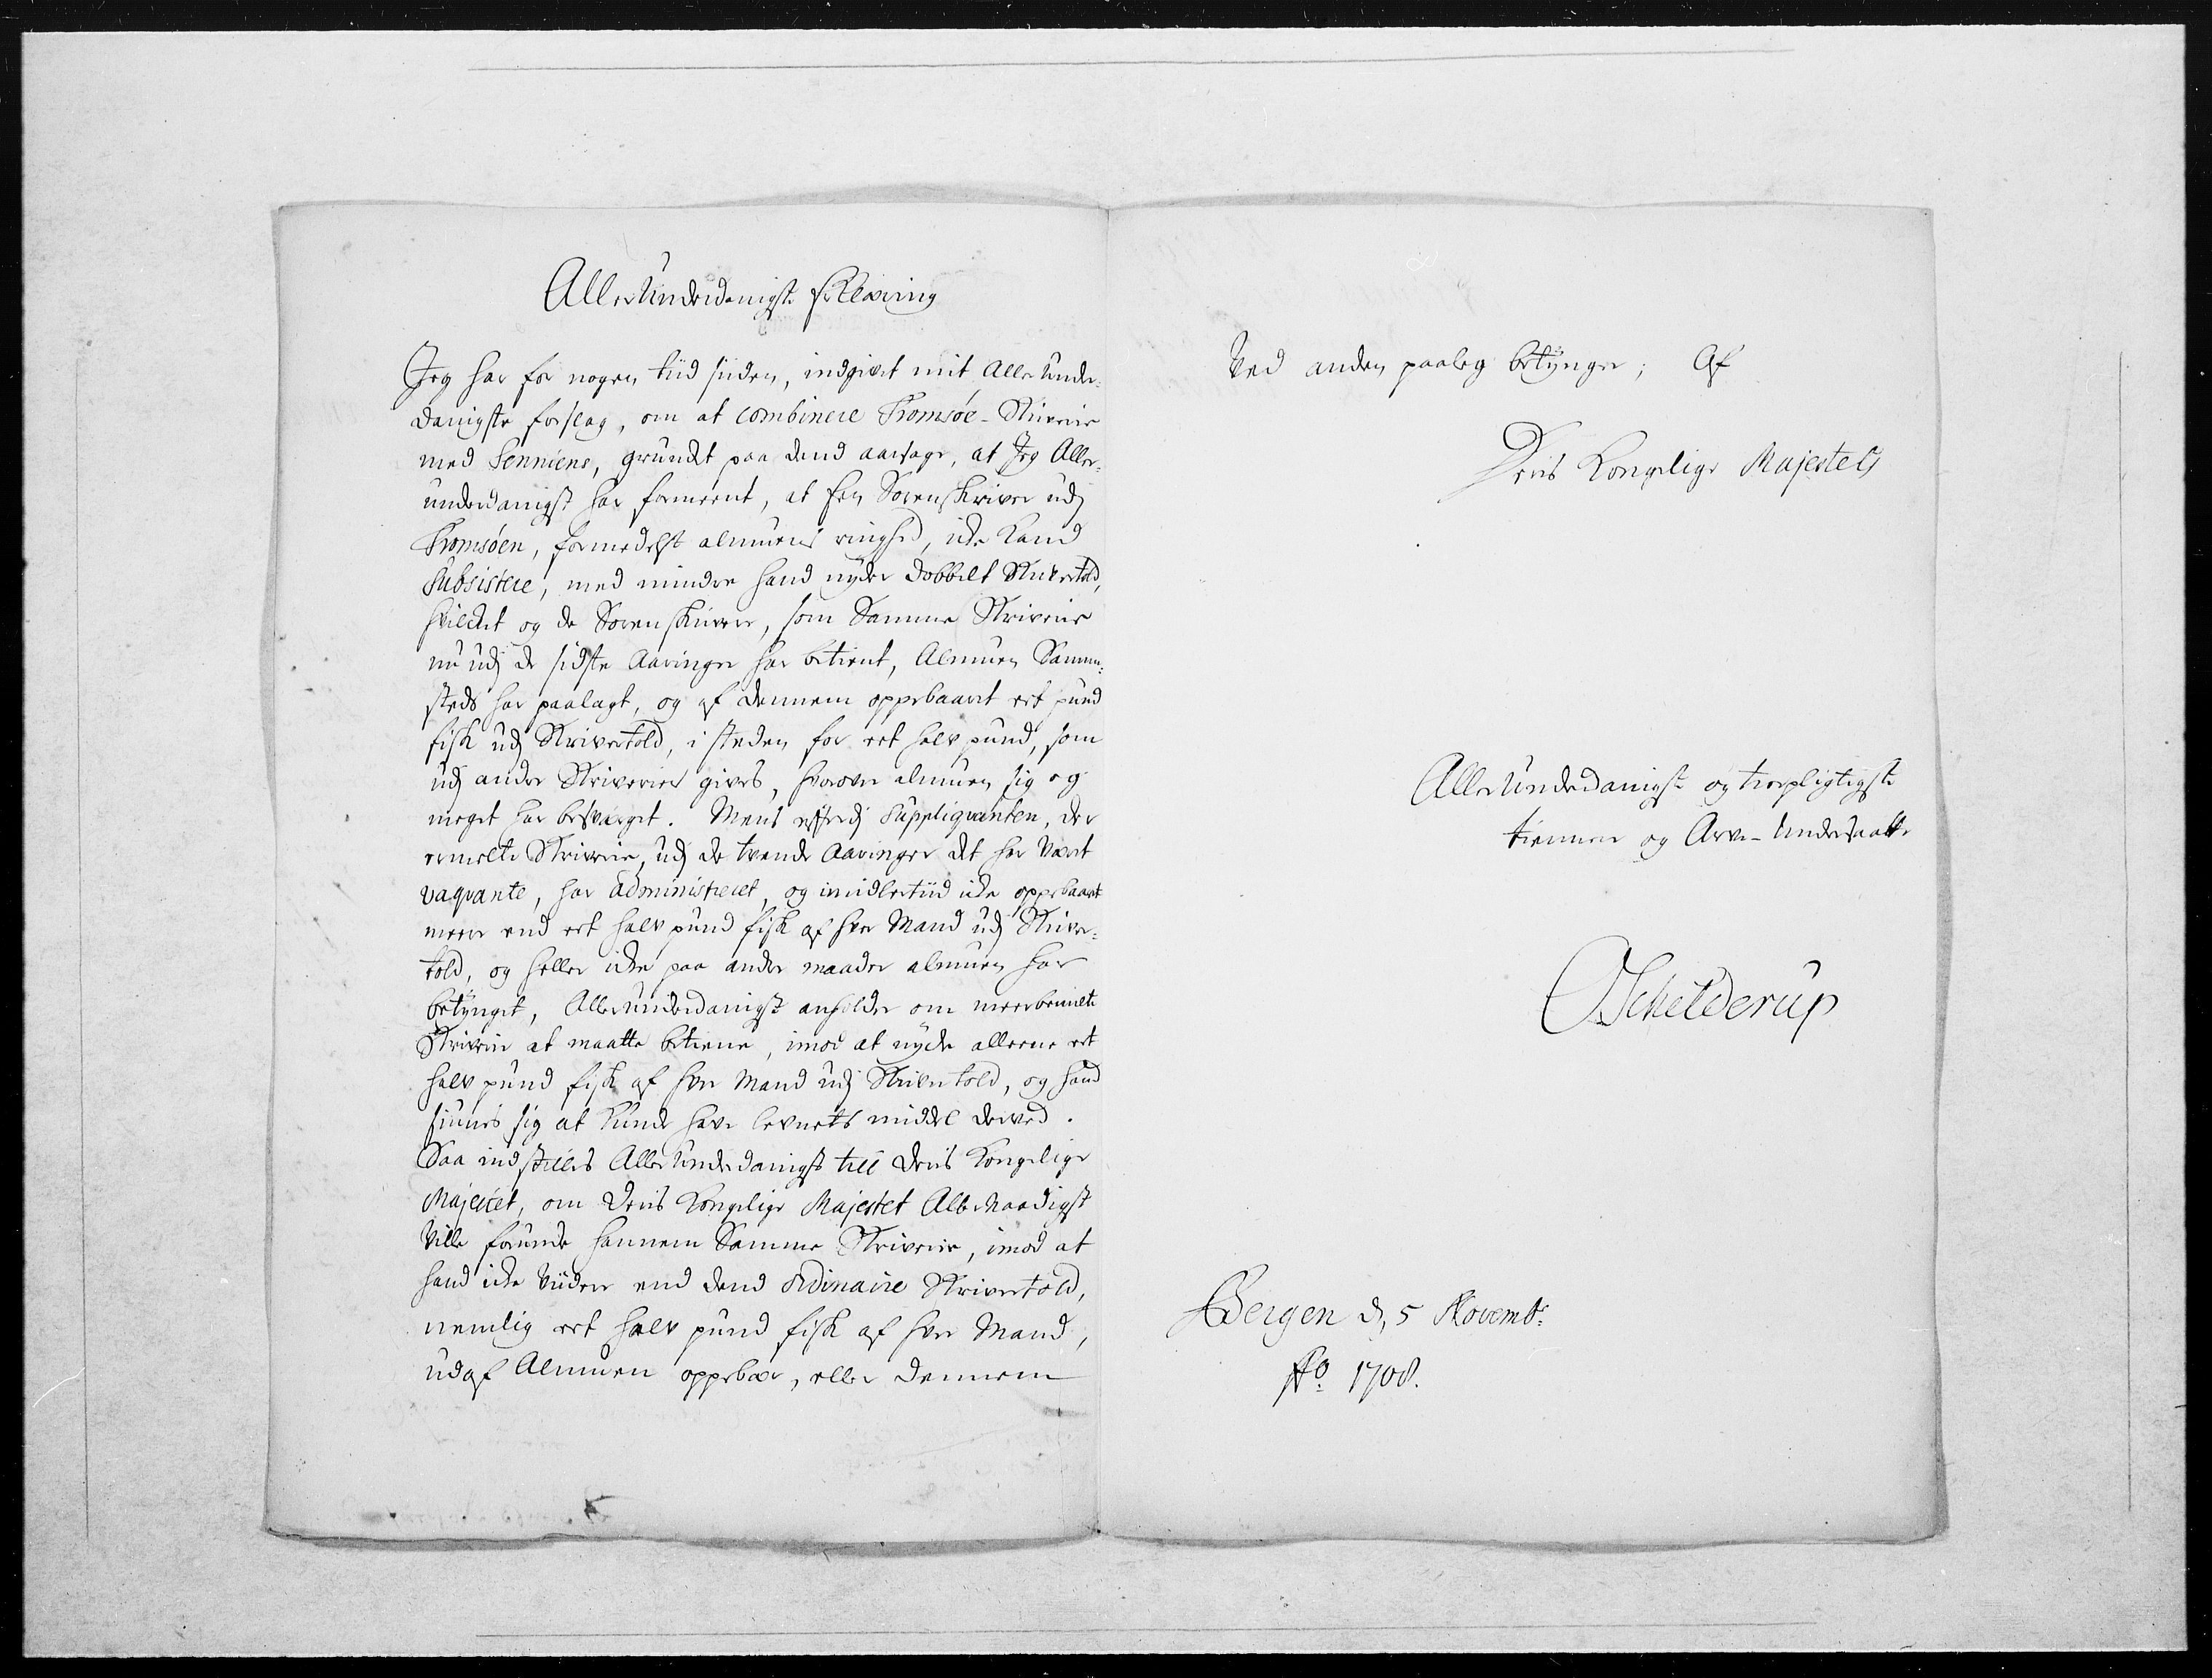 AllerUnderdanigste Erklæring
Jeg har for nogen tiid siden, indgivet mit AllerUnder-
danigste forslag, om at combinere Tromsøe-Skriverie
med Senniens, grundet paa dend aarsage, at Jeg Aller-
underdanigst har formeent, at En Sorenskriver udj
Tromsöen, formedelst almuens ringhed, icke kand
Subsistere, med mindre hand nyder dobbelt Skrivertold,
hvilcket og de Sorenskrivere, som Samme Skriverie
nu udj de sidste Aaringer har betient, Almuen Samme-
steds har paalagt, og af dennem oppebaaret eet pund
fisk udj Skrivertold, i steden for eet halv pund, som
udj andre Skriverier gives, hvorover almuen sig og
meget har besværget. Mens efterdj Suppliqvanten, der
ermelte Skriverie, udj de tvende Aaringer det har Vært
vaqvante, har administreret, og imidlertiid icke oppebaaret
meere end eet halv pund fisk af hver Mand udj Skriver-
told, og heller icke paa andre maader almuen har
betynget, Allerunderdanigst anholder om meerbemelte
Skriverie at maatte betiene, imod at nyde alleene eet
halv pund fisk af hver Mand udj Skrivertold, og hand
siunes sig at kunde have levnets middel derved.
Saa indstilles AllerUnderdanigst till Deris Kongelige
Majestet, om Deris Kongelige Majestet AllerNaadigst
Ville forunde hannem Samme Skriverie, imod at
hand icke Viidere end dend ordinaire Skrivertold,
nemlig eet halv pund fisk af hver Mand,
udaf Almuen oppebær, eller dennem
Ved anden paaleg betynger; Af
Deris Kongelige Majestets
AllerUnderdanigste og troepligtigste
tienner og Arve-Undersaatte
OSchelderup
Bergen d, 5 Novembr:
Ao 1708.